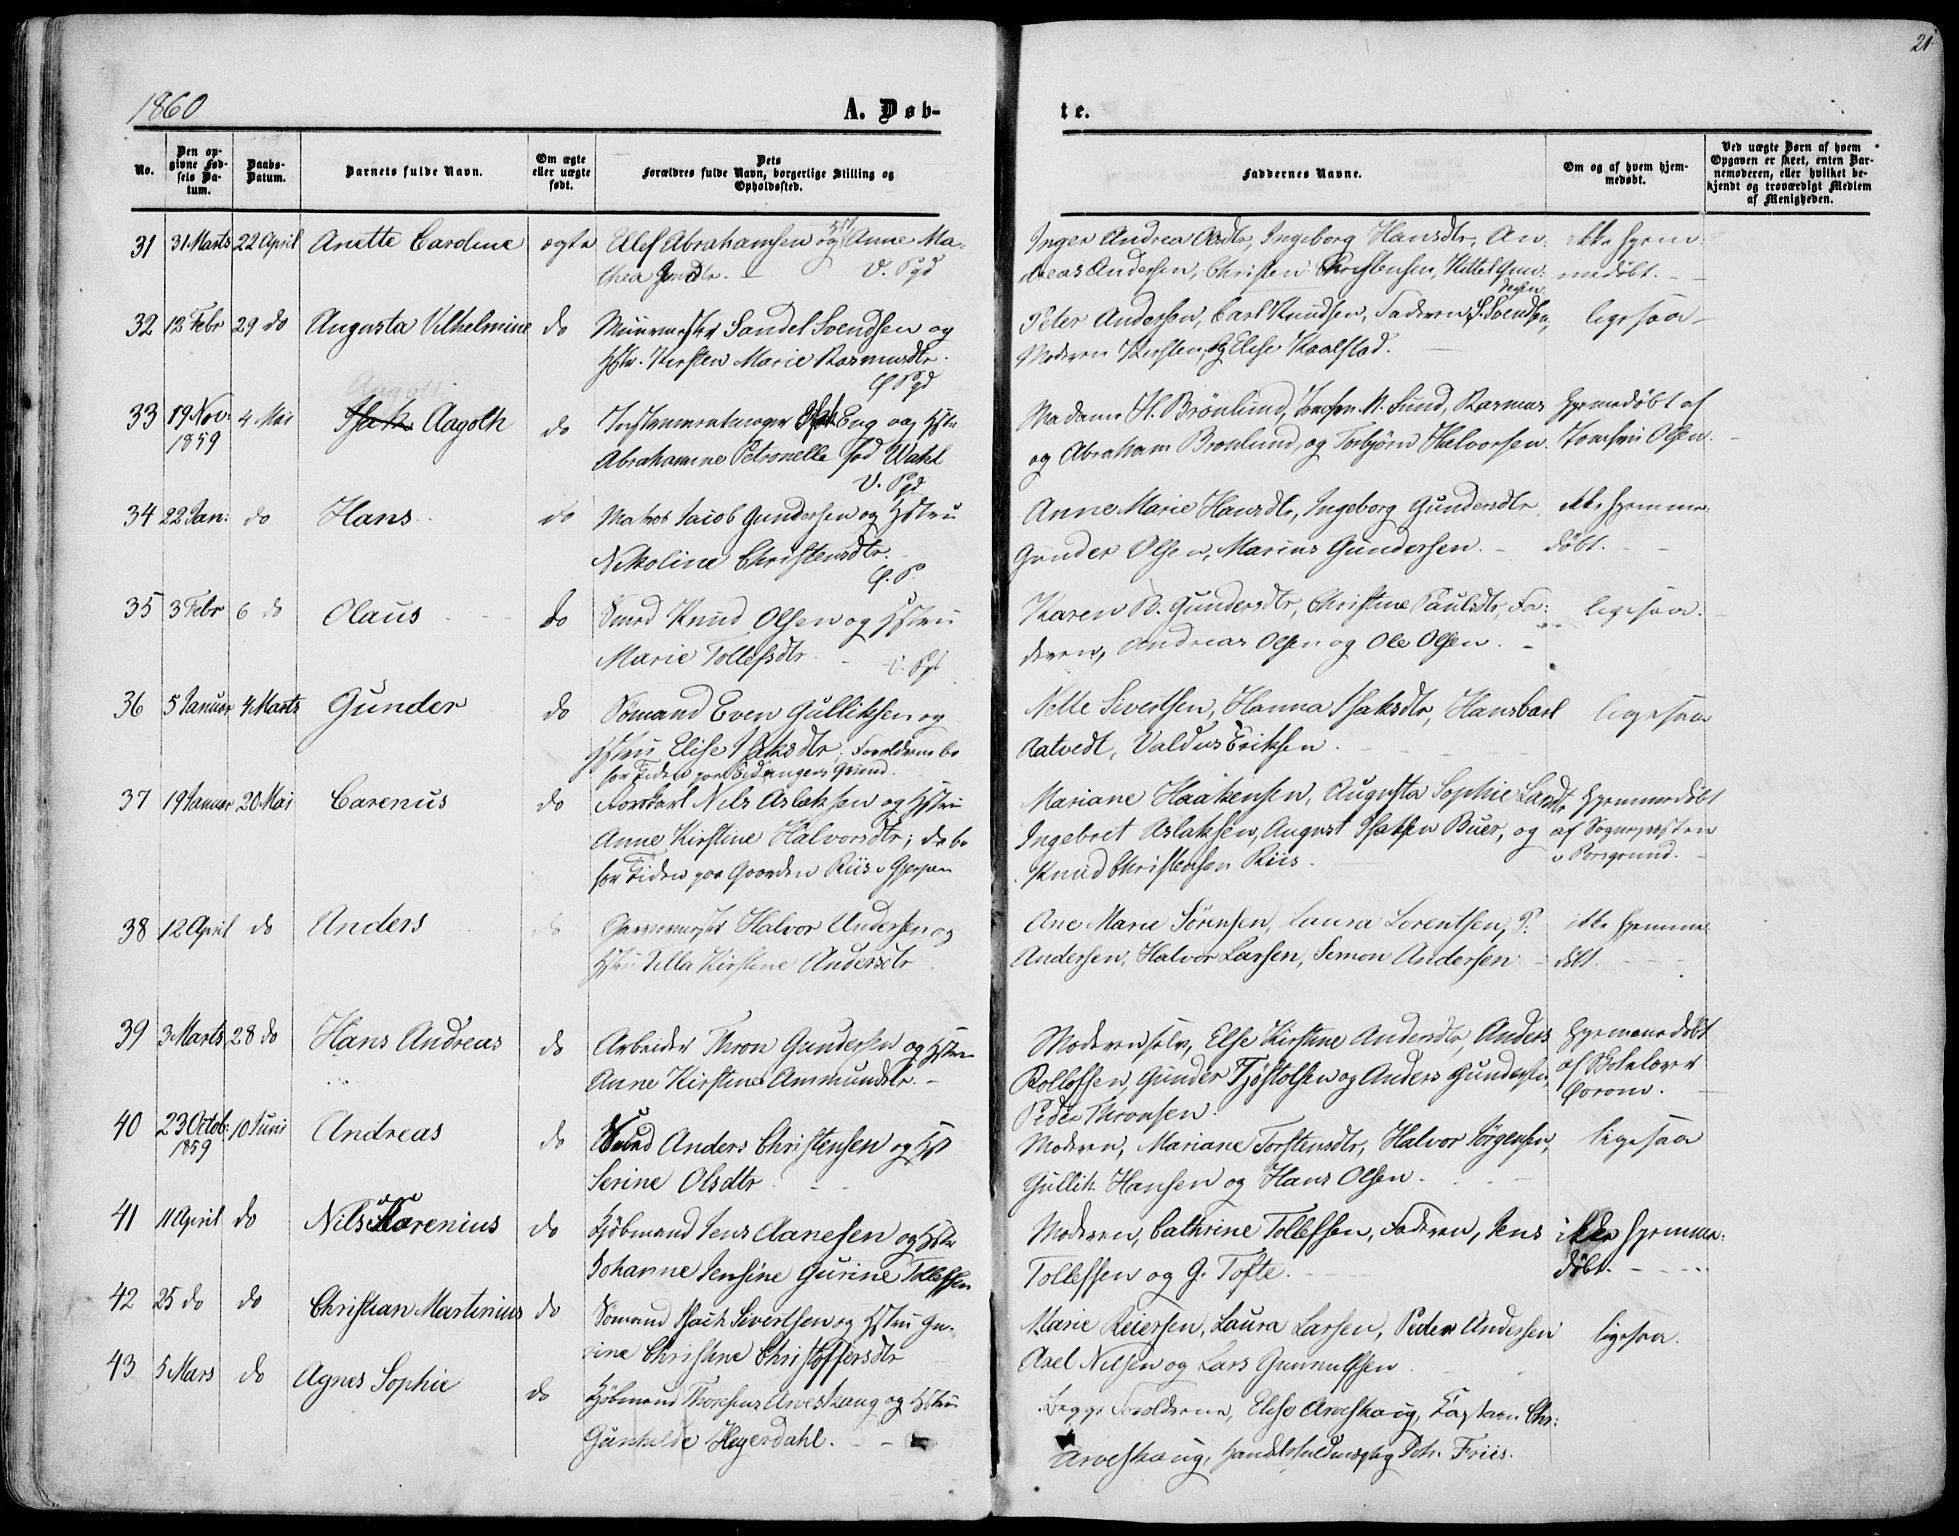 1860
A. Døb-
te.
21
No.
Den op-
givne Fød-
sels Da-
tum.
Daabs-
Datum.
Barnets fulde Navn.
Om ægte
eller uægte
født.
Dets
Forældres fulde Navn, borgerlige Stilling og
Opholdssted.
Faddernes Navne.
Om og af hvem hjem-
medøbt.
Ved uægte Børn af hvem
Opgaven er skeet, enten Bar-
nemoderen, eller hvilket be-
kjendt og troværdigt Medlem
af Menigheden.
31 31 Marts 22 April Anette Caroline ægte Ellef Abrahamsen og Anne Ma-
thea V. Pgd
Inger Andrea Olsdtr, Ingeborg Hansdtr, An- ikke hjem-
dreas Andersen, Christen Christensen, Kittel Gun- medøbt.
32 12 Febr 29 do Augusta Vilhelmine do Muurmester Sandel Svendsen og
Hstr. Kirsten Marie Rasmusdtr.
Ø Pgd
Peter Andersen, Carl Knudsen, Faderen S. Svendsen, ligesaa
Moderen Kirsten, og Elise Kaalstad.
33 19 Nov: 4 Mai Isak Aagoth do Instrumentmager Isak Eng og Hstr
1859
Abrahamine Petronelle fød Wahl
V. Pgd
Madame H. Brønlund, M. Lund, Rasmus hjemmedøbt af
og Abraham Brønlund, og Torbjørn Halvorsen. Olsen.
34 22 Jan: do Hans do Matros Jacob Gundersen og Hstru
Nikoline Christensdtr.
Ø. P.
Anne Marie Hansdtr, Ingeborg Gundersdtr ikke hjemme-
Gunder Olsen, Marius Gundersen. døbt.
35 3 Febr 6 do Olaus do Smed Knud Olsen og Hstru
Marie Tollefsdtr.
V. Pgd
Karen B. Gundersdtr, Christine Paulsdtr, Fa- ligesaa.
deren, Andreas Olsen og Ole Olsen.
36 5 Januar 4 Marts Gunder do Sømand Even Gulliksen og
Hstru Elise Isaksdtr. Forældrene bo
for Tiden paa Eidangers Grund.
Nelle Sivertsen, Hanna Isaksdtr, Hans Carl ligesaa
Aatvedt, Valdus Eriksen.
37 19 Januar 20 Mai Carenius do Nils Aslaksen og Hstru
Anne Kirstine Halvorsdtr; de bo
for Tiden paa Gaarden Riis i Gjerpen
Mariane Haakensen, Augusta Sophie Larsdtr hjemmedøbt
Ingebret Aslaksen, August Isaksen Buer, og af Sognepresten
Knud Christensen Riis. i Porsgrund.
38 12 April do Anders do Garvermester Halvor Andersen og
Hstru Tella Kirstine Andersdtr
Ane Marie Sørensen, Laura Lorentsen, P. ikke hjemme-
Andersen, Halvor Larsen, Simon Andersen døbt.
39 3 Marts 28 do Hans Andreas do Arbeider Thron Gundersen og Hstru
Anne Kirstine Ammundsdtr.
Moderen selv, Else Kirstine Andersdtr, Anders hjemmedøbt
Rollefsen, Gunder Tjøstolsen og Anders Gundersen, af Skolelærer
Peder Thronsen.
40 23 Octob: 10 Juni Andreas do Smed Anders Christensen og Hst
1859
Serine Olsdtr
Moderen, Mariane Torstensdtr, Halvor Jørgensen, ligesaa
Gullik Hansen og Hans Olsen.
41 11 April do Nils Karenius do Kjøbmand Jens Aanesen og Hstr
Johanne Jensine Gurine Tollefsen
Moderen, Cathrine Tollefsen, Faderen, Jens ikke hjemme-
Tollefsen og G. Tofte. døbt.
42 25 do do Christian Martinius do Sømand Isach Sivertsen og Hstru Gu-
rine Christine Christoffersdtr
Marie Reiersen, Laura Larsen, Peder Andersen ligesaa.
Axel Nilsen og Lars Gunnulfsen
43 5 Mars do Agnes Sophie do Kjøbmand Arveskoug og Hstru
Gunhilde Heyerdahl.
Begge Forældrene, Elise Arveskoug, Captain Chr:
Arveskoug, Handelsfuldmægtig Joh. Friis.